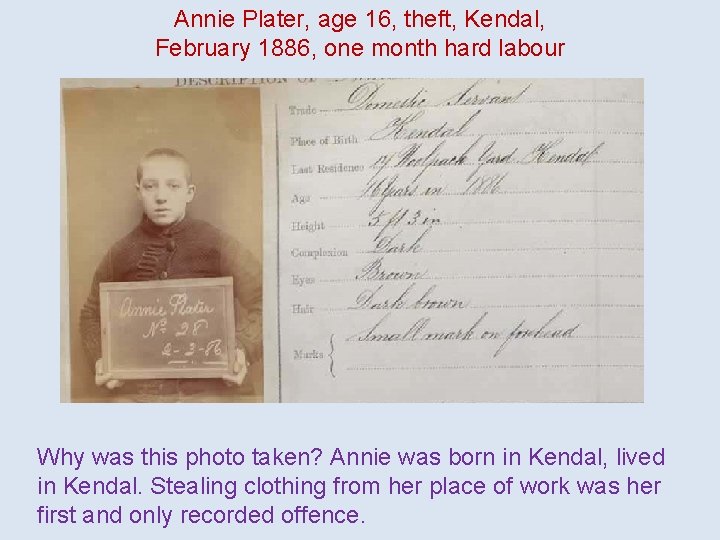 Annie Plater, age 16, theft, Kendal,
February 1886, one month hard labour
DESCRIPTION OF
Trade Domestic Servant
Place of Birth Kendal
Last Residence 17 Woolpack Yard Kendal
Age 16 years in 1886
Height 5 ft 3 in
Complexion Dark
Eyes Brown
Hair Dark brown
Marks Small mark on forehead
Annie Plater
No 28
2-3-86
Why was this photo taken? Annie was born in Kendal, lived
in Kendal. Stealing clothing from her place of work was her
first and only recorded offence.